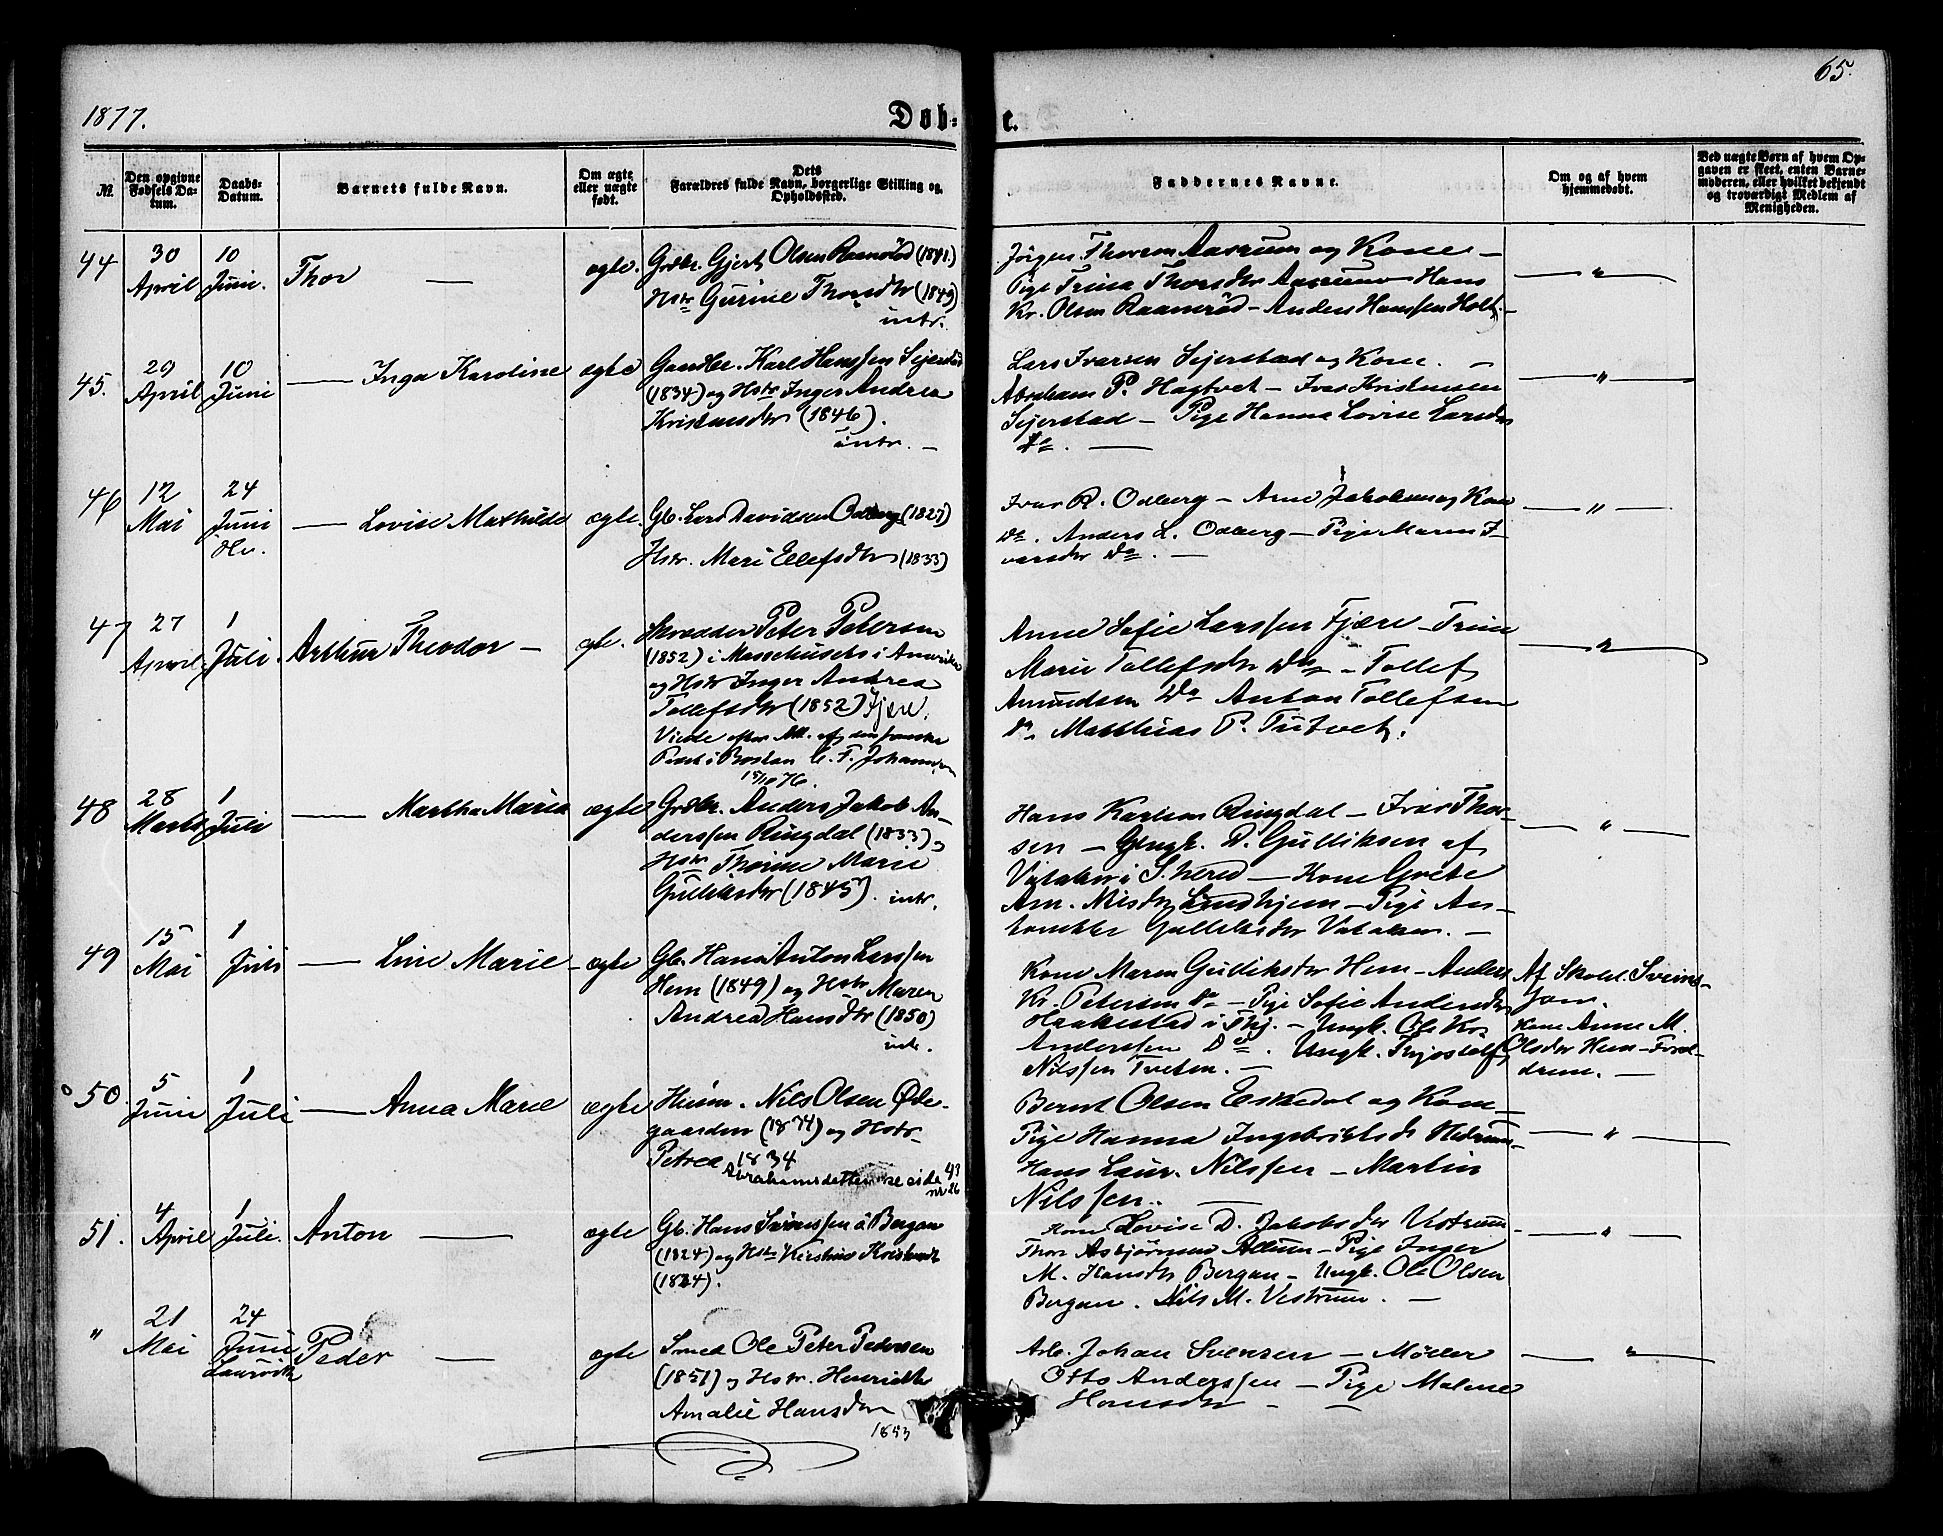 1877.
Døb-
e.
65.
№
Den opgivne Fødsels Da-tum.
Daabs-Datum.
Barnets fulde Navn.
Om ægte eller uægte født.
Dets Forældres fulde Navn, borgerlige Stilling og Opholdssted.
Faddernes Navne.
Om og af hvem hjemmedøbt.
Ved uægte Børn af hvem Op-gaven er skeet, enten Barne-moderen, eller hvilket bekjendt og troværdigt Medlem af Menigheden.
44 30 April 10 Juni. Thor — ægte.
Grdbr. Gjert Olsen Raamrød (1841.)
Hstr Gurine Thorsdtr (1849)
intr.
Jörgen Thorsen Aasrum og Kone —
Pige Trina Thorsdtr Aasrum Hans
Kr. Olsen Raamröd — Anders Hanssen Holt. —
— " —
45. 29 April 10 Juni — Inga Karoline ægte
Gaardbr. Karl Hanssen Sejerstad
(1834) og Hstr Inger Andrea
Kristensdtr (1846).
intr. —
Lars Ivarsen Sejerstad og Kone. —
Abraham P. Hagtvet — Ivar Kristensen
Sejerstad — Pige Hanna Lovise Larsdtr
Do. —
— " —
46 12 Mai 24 Juni Hv. — Lovise Mathilde ægte.
Gb. Lars Davidsen Odberg (1827)
Hstr. Mari Ellefsdtr (1833)
Ivar R. Odberg — Arne Jakobsen og Kone
Do. Anders L. Odberg — Pige Maren I-
varsdtr Do. —
— " —
47 27 April 1 Juli. Arthur Theodor — ægte.
Skrædder Peter Petersen
(1852) i Massachusets i Amerika
og Hstr Inger Andrea
Tollefsdtr (1852) Fjære.
Viede efter Att. af den svenske
Præst i Boston C. F. Johansson
15/10 76.
Anne Sofie Larssen Fjære — Trine
Marie Tollefsdtr Do — Tollef
Amundsen Do Anton Tollefsen
Do. Matthias P. Tutvet.
— " —
48 28 Marts 1 Juli — Martha Maria ægte
Grdbr. Anders Jakob An-
derssen Ringdal (1833) og
Hstr Thorine Marie
Gulliksdtr (1845). intr.
Hans Karlsen Ringdal — Ivar Thor-
sen — Ungk. D. Gulliksen af
i S. herred — Kone Grete
Am. Nilsdtr Lindhjem — Pige An-
Gulliksdtr —
— " —
49 15 Mai 1 Juli — Line Marie — ægte
Gb. Hans Anton Larssen
Hem (1849) og Hstr Maren
Andrea Hansdtr (1850)
intr.
Kone Maren Gulliksdtr Hem — Anders
Kr. Petersen Do — Pige Sofie Andersdtr
Haakestad i Thj. — Ungk. Ole Kr.
Anderssen Do. Ungk. Thjostolf
Nilssen Tveten. —
Af Skolel. Svens-
Kone Anne M.
Olsdtr Hem —
—
50. 5 Juni 1 Juli — Anna Marie ægte
Husm. Nils Olsen Øde-
gaarden (1874) og Hstr.
Petrea 1834
Abrahamsdatter se side 43
nr 26
Bernt Olsen Eskedal og Kone —
Pige Hanna Ingebrigtsd. Hedrum —
Hans Laur. Nilssen — Martin
Nilssen. —
— " —
51. 4 April 1 Juli. Anton — ægte
Gb. Hans Svenssen å Bergan
(1824) og Hstr Kirstine Kristensdtr
(1834).
Kone Lovise D. Jakobsdtr Vestrum
Thor Asbjørnsen — Pige Inger
M. Hansdtr Bergan — Ungk. Ole Olsen
Bergan. Nils M. Vestrum. —
— " —
" 21 Mai 24 Juni Laurvik Peder — ægte
Smed Ole Peter Pedersen
(1851) og Hstr. Henriette
Amalie Hansdtr
1853
Arb. Johan Svensen — Møller
Otto Anderssen — Pige Malene
Hansdtr —
— " —